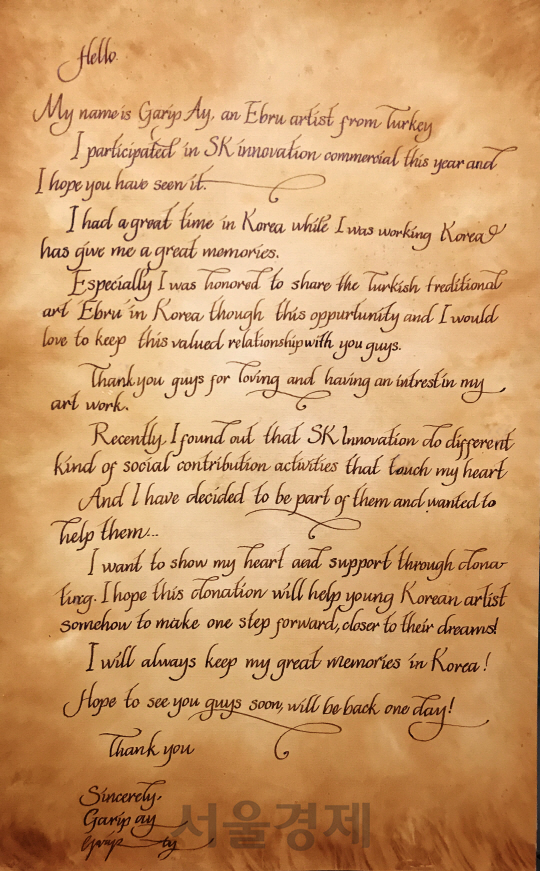 Hello.
My name is Garip Ay, an Ebru artist from Turkey
I participated in SK innovation commercial this year and
I hope you have seen it.
I had a great time in Korea while I was working Korea
has give me a great memories.
Especially I was honored to share the Turkish treditional
art Ebru in Korea though this oppurtunity and I would
love to keep this valued relationship with you guys.
Thank you guys for loving and having an intrest in my
art work.
Recently, I found out that SK Innovation do different
kind of social contribution activities that touch my heart
And I have decided to be part of them and wanted to
help them...
I want to show my heart and support through dona-
ting. I hope this donation will help young Korean artist
somehow to make one step forward, closer to their dreams!
I will always keep my great memories in Korea!
Hope to see you guys soon, will be back one day!
Thank you
Sincerely,
Garip ay
Garip ay
서울경제